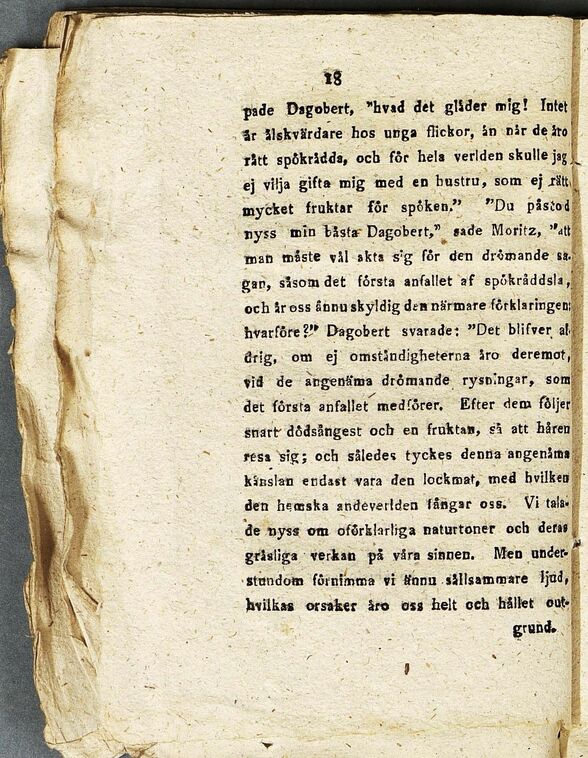 18
pade Dagobert, ”hvad det glåder mig! Intet
år ålskvårdare hos unga flickor, ån når de åro
rått spökrådda, och för hela verlden skulle jag
ej vilja gifta mig med en hustru, som ej rått
mycket fruktar för spöken.” ”Du påstod
nyss min båsta Dagobert,” sade Moritz, ”att
man måste vål akta sig för den drömande sa-
gan, såsom det första anfallet af spökråddsla,
och år oss ånnu skyldig den nårmare förklaringen:
hvarföre?” Dagobert svarade: ”Det blifver al-
drig, om ej omståndigheterna åro deremot,
vid de angenåma drömande rysningar, som
det första anfallet medförer. Efter dem följer
snart dödsångest och en fruktan, så att håren
resa sig; och således tyckes denna angenåma
kånslan endast vara den lockmat, med hvilken
den hemska andeverlden fångar oss. Vi tala-
de nyss om oförklarliga naturtoner och deras
gråsliga verkan på våra sinnen. Men under-
stundom förnimma vi ånnu sållsammare ljud,
hvilkas orsaker åro oss helt och hållet out-
grund.